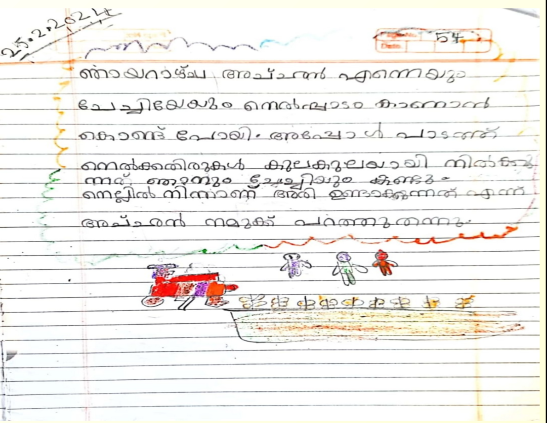 25.2.2024
54
Date
ഞായറാഴ്ച അച്ഛൻ എന്നെയും
ചേച്ചിയേയും നെൽപ്പാടം കാണാൻ
കൊണ്ട് പോയി. അപ്പോൾ പാടത്ത്
നെൽക്കതിരുകൾ കുലകുലയായി നിൽക്കു
ന്നത് ഞാനും ചേച്ചിയും കണ്ടു.
നെല്ലിൽ നിന്നാണ് അരി ഉണ്ടാക്കുന്നത് എന്ന്
അച്ഛൻ നമുക്ക് പറഞ്ഞുതന്നു.